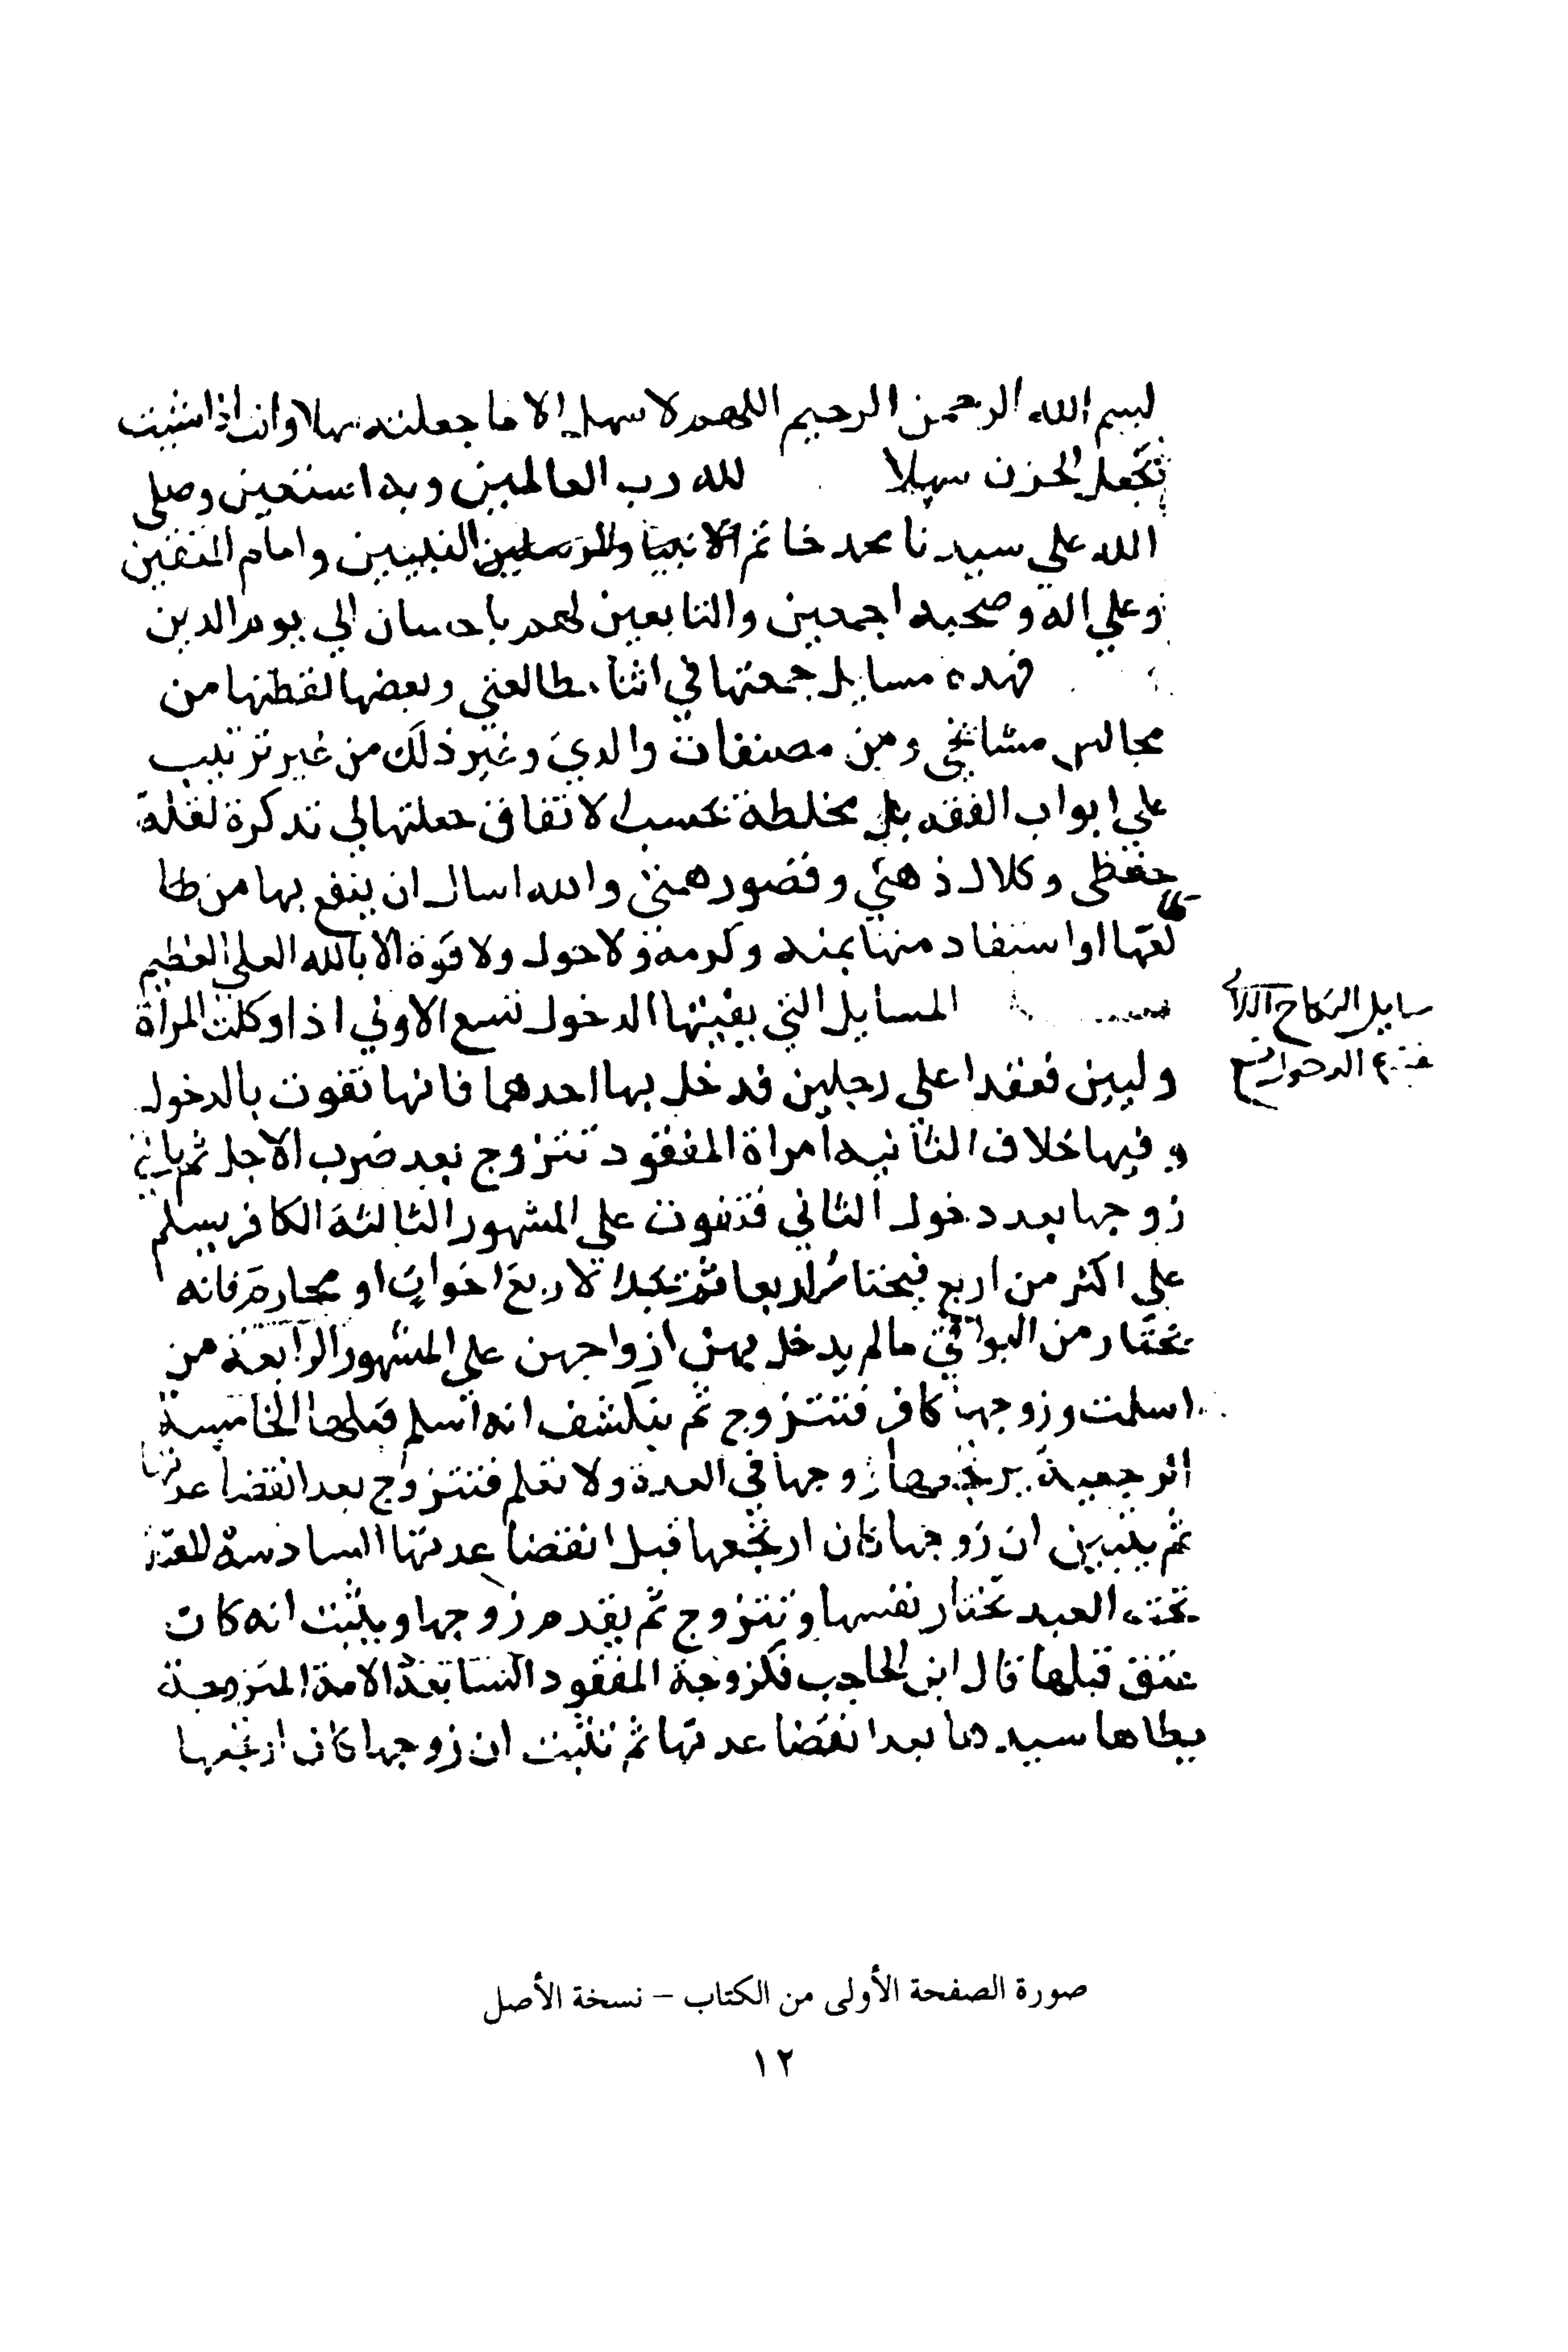 بسم الله الرحمن الرحيم اللهم لا سهل الا ما جعلته سهلا وانت اذا شيت
تجعل الحزن سهلا لله رب العالمين وبه استعين وصلى
الله علي سيدنا محمد خاتم الانبيا والمرسلين النبيين وامام المتقين
وعلي اله وصحبه اجمعين والتابعين لهم باحسان الي يوم الدين
فهده مسايل جمعتها في اثنا مطالعتي وبعضها لقطتها من
مجالس مشايخي ومن مصنفات والدي وغير ذلك من غير ترتيب
علي ابواب الفقه بل مختلطة بحسب الاتفاق جعلتها لي تدكرة لقلة
حفظي وكلال ذهني وقصور همتي والله اسال ان ينفع بها من طا
لعها او استفاد منها بمنه وكرمه ولا حول ولا قوة الا بالله العلي العظيم
المسايل التي يفيتها الدخول تسع الاولي اذا وكلت المراة
مسايل النكاح اللاتي
الدخول تسع
وليين فعقدا علي رجلين فدخل بها احدهما فانها تفوت بالدخول
وفيها خلاف الثانيه امراة المفقود تتزوج بعد ضرب الاجل ثم ياتي
زوجها بعد دخول الثاني فتفوت علي المشهور الثالثة الكافر يسلم
علي اكثر من اربع فيختار اربعا ثم تجد الاربع اخوات او محارم فانه
يختار من البواقي ما لم يدخل بهن ازواجهن علي المشهور الرابعة من
اسلمت وزوجها كافر فتتزوج ثم ينكشف انه اسلم قبلها الخامسة
الرجعية يرتجعها زوجها في العدة ولا تعلم فتتزوج بعد انقضا عدتها
ثم يتبين ان زوجها كان ارتجعها قبل انقضا عدتها السادسة المعتقة
تحت العبد تختار نفسها وتتزوج ثم يقدم زوجها ويثبت انه كان
عتق قبلها قال ابن الحاجب فكزوجة المفقود السابعة الامة المتزوجة
يطاها سيدها بعد انقضا عدتها ثم تثبت ان زوجها كان ارتجعها
صورة الصفحة الأولى من الكتاب – نسخة الأصل
١٢